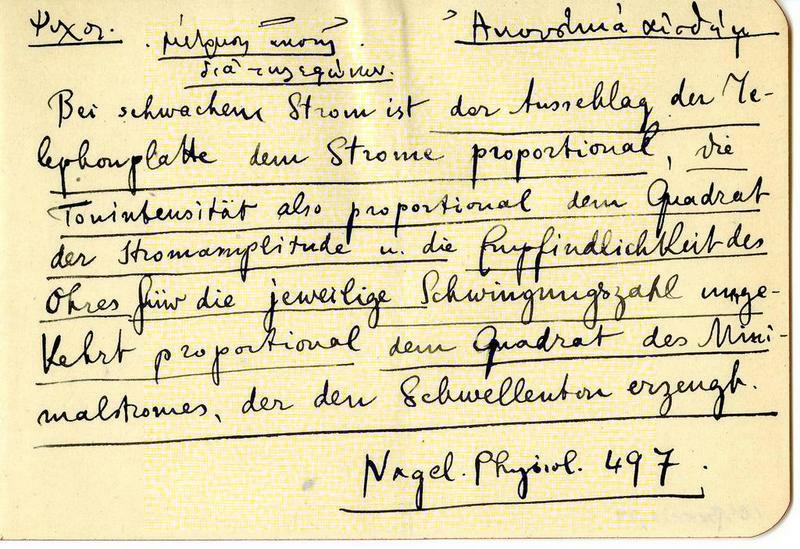 Ψυχολ. μέτρησις ἀκοῆς Ἀκουστικά
διὰ τηλεφώνων.
Bei schwachem Strom ist der Ausschlag der Te-
lephonplatte dem Strome proportional, die
Tonintensität also proportional dem Quadrat
der Stromamplitude u. die Empfindlichkeit des
Ohres für die jeweilige Schwingungszahl umge-
kehrt proportional dem Quadrat des Mini-
malstromes, der den Schwellenton erzeugt.
Nagel. Physiol. 497.